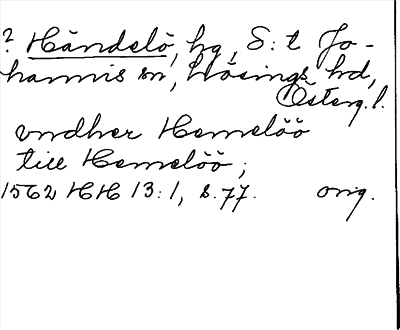 ? Händelö, hg, S:t Jo-
hannis sn, Lösings hd,
Österg. l.
vndher Hemelöö
till Hemelöö;
1562 HH 13:1, s. 77. orig.